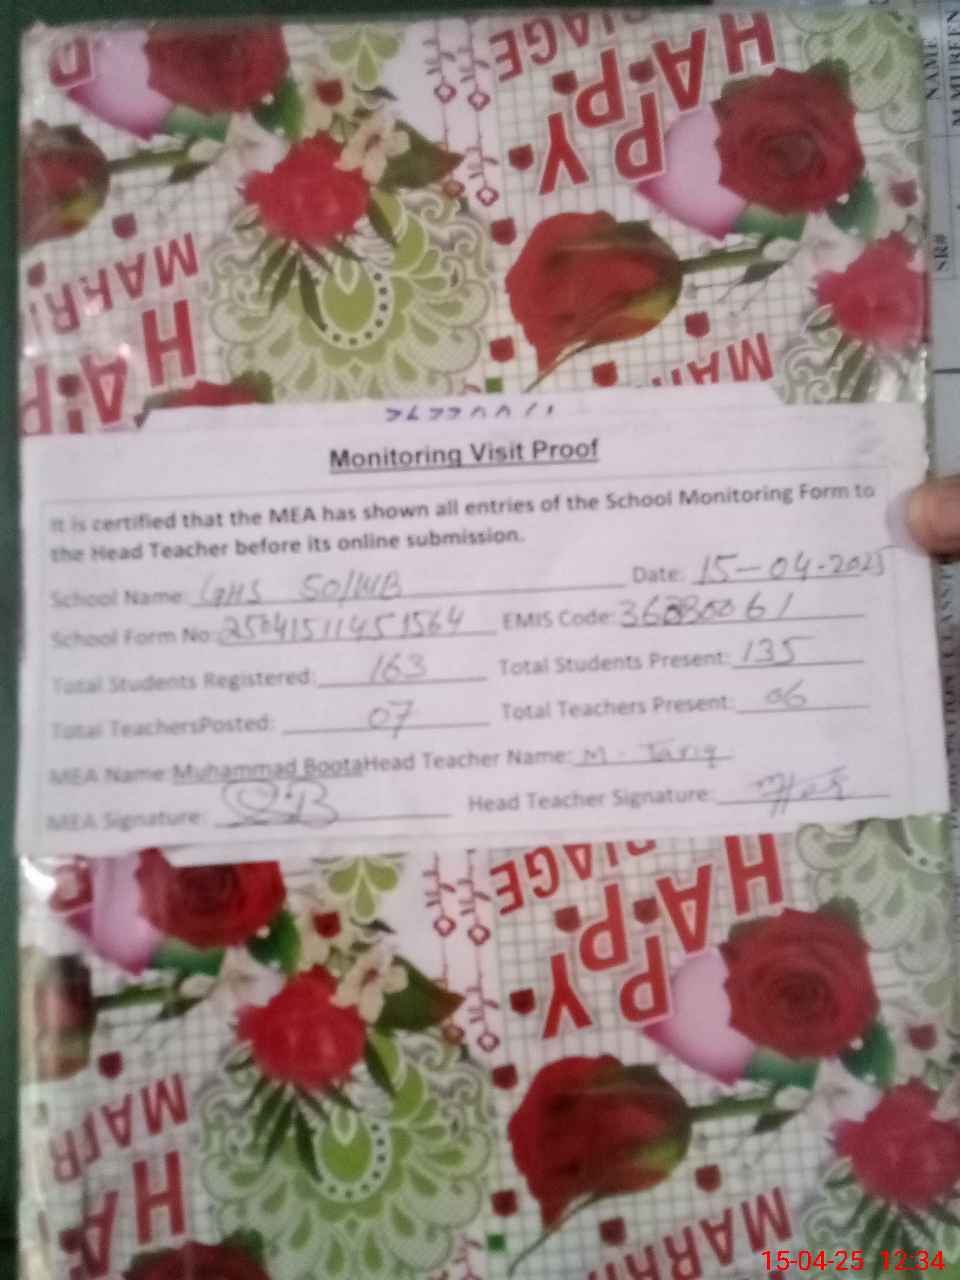 NAME
M MUBEEN
SR#
HAPPY
MARRIAGE
HAPPY
MARRIAGE
Monitoring Visit Proof
It is certified that the MEA has shown all entries of the School Monitoring Form to
the Head Teacher before its online submission.
School Name: GHS 50/WB Date: 15-04-2025
School Form No: 25041511451564 EMIS Code:
Total Students Registered: 163 Total Students Present: 135
Total TeachersPosted: 07 Total Teachers Present: 06
MEA Name: Muhammad Boota Head Teacher Name: M. Tariq
MEA Signature: Head Teacher Signature:
HAPPY
MARRIAGE
15-04-25 12:34